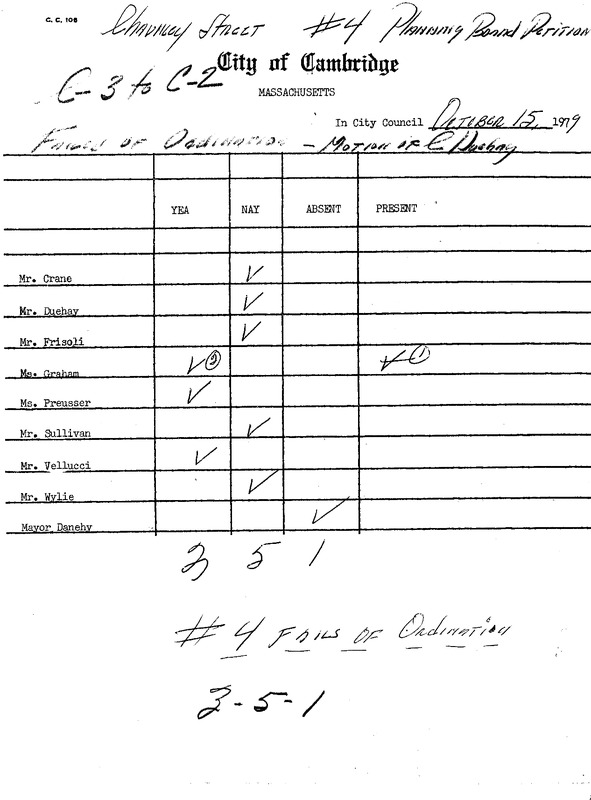 C. C. 108
Chauncy Street #4 Planning Board Petition
City of Cambridge
C-3 to C-2
MASSACHUSETTS
In City Council October 15, 1979
Failed of Ordination - Motion of C Duehay
YEA NAY ABSENT PRESENT
Mr. Crane ✓
Mr. Duehay ✓
Mr. Frisoli ✓
Ms. Graham ✓② ✓①
Ms. Preusser ✓
Mr. Sullivan ✓
Mr. Vellucci ✓
Mr. Wylie ✓
Mayor Danehy ✓
3 5 1
#4 Fails of Ordination
3-5-1